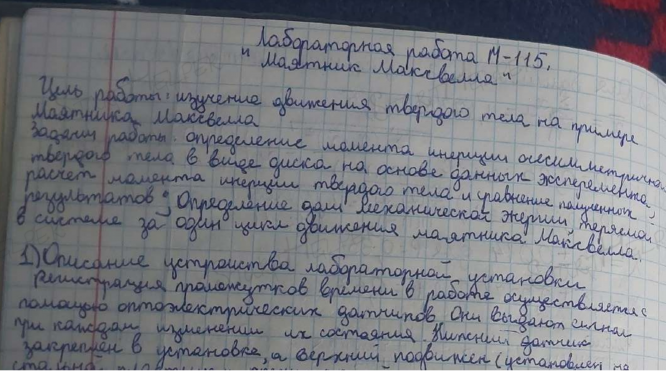 Лабораторная работа М-115.
"Маятник Максвелла"
Цель работы: изучение движения твердого тела на примере
Маятника Максвелла
Задачи работы: определение момента инерции осесимметрично
твердого тела в виде диска на основе данных эксперемента,
расчет момента инерции твердого тела и уравнение полученных
результатов; Определение доли механической энергии теряемой
в системе за один цикл движения маятника Максвелла.
1) Описание устройства лабораторной установки
Регистрация промежутков времени в работе осуществляется с
помощью оптоэлектрических датчиков. Они выдают сигнал
при каждом изменении их состояния. Нижний датчик
закреплен в установке, а верхний подвижен (установлен на